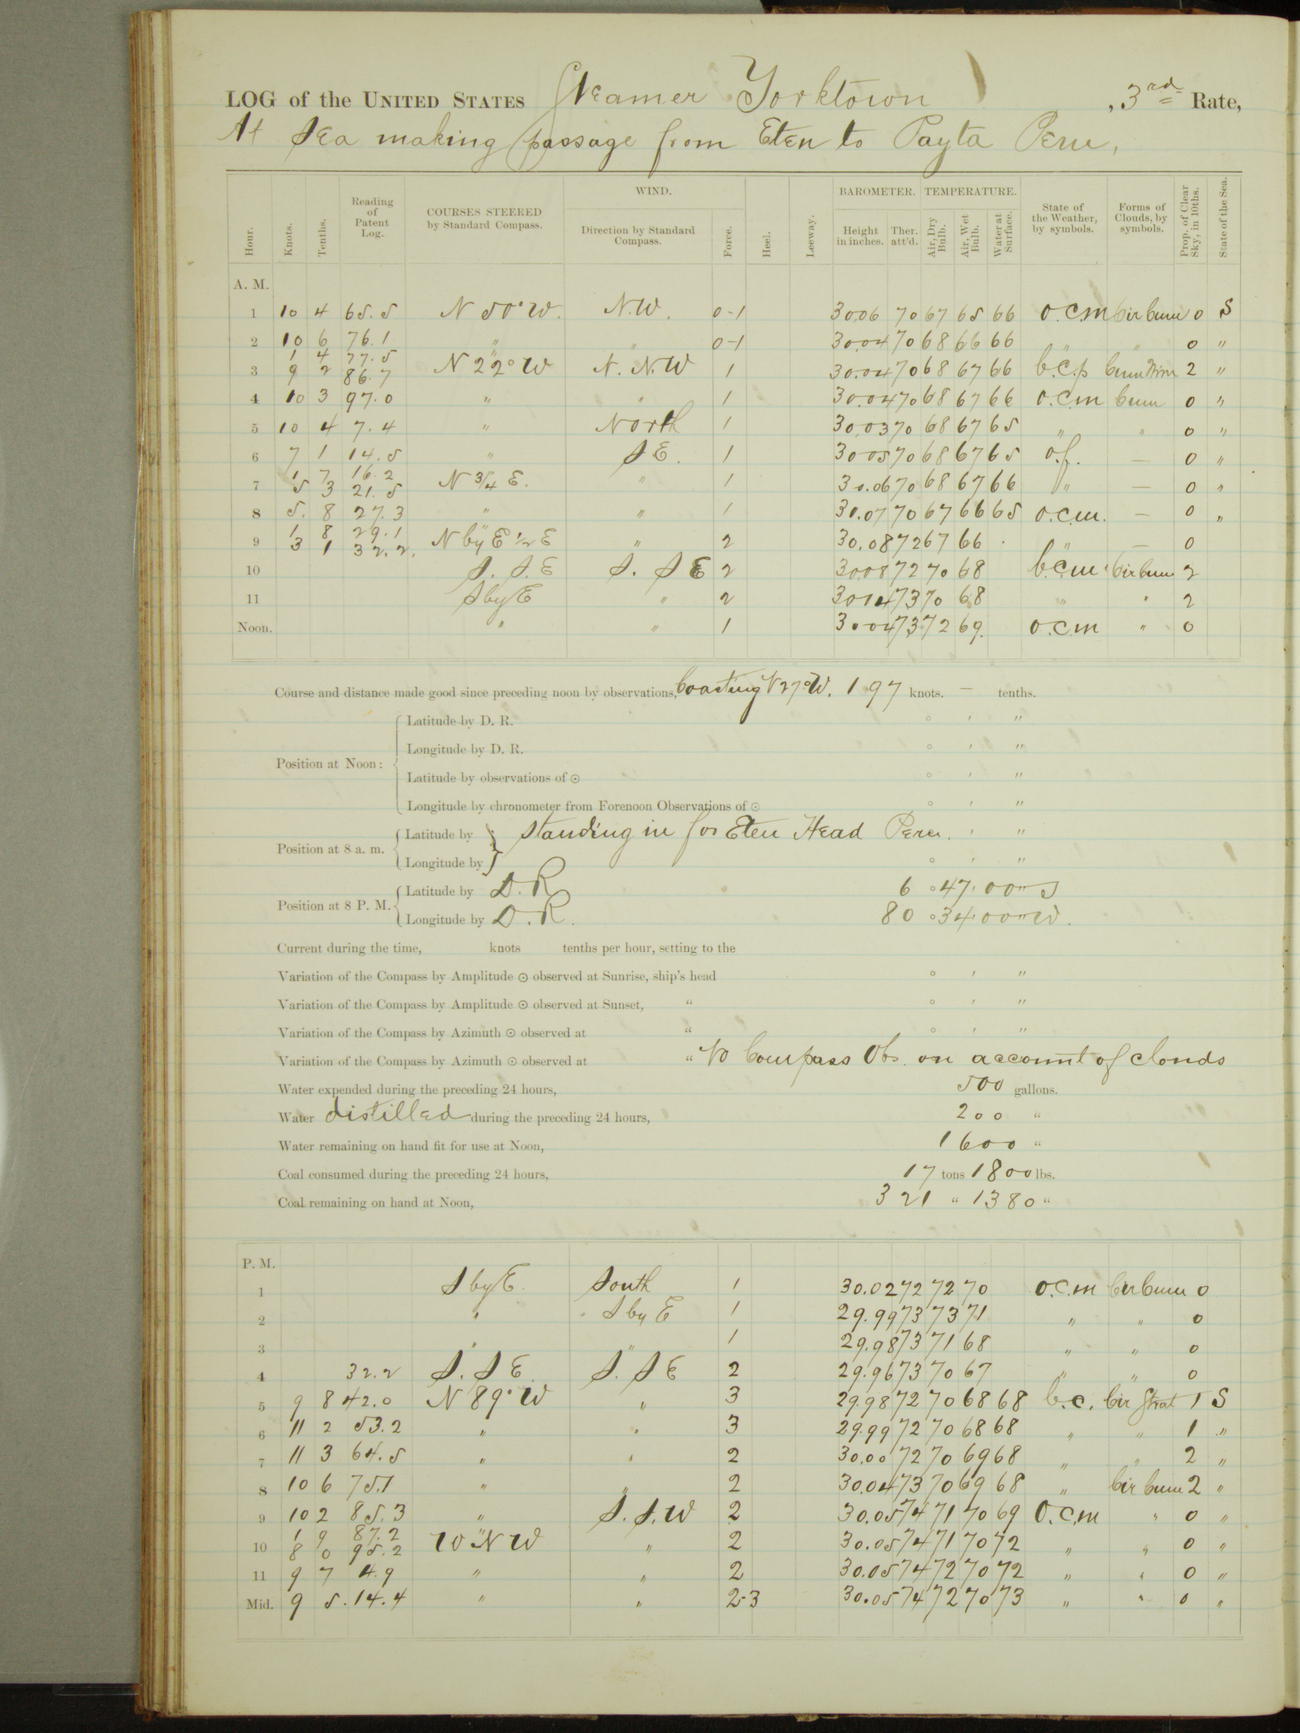 LOG of the UNITED STATES Steamer Yorktown , 3rd Rate,
At Sea making passage from Eten to Payta Peru,
Hour. Knots. Tenths. Reading of Patent Log. COURSES STEERED by Standard Compass. WIND. Direction by Standard Compass. Force. Heel. Leeway. BAROMETER. Height in inches. Ther. att'd. TEMPERATURE. Air, Dry Bulb. Air, Wet Bulb. Water at Surface. State of the Weather, by symbols. Forms of Clouds, by symbols. Prop. of Clear Sky, in 10ths. State of the Sea.
A. M.
1 10 4 65.5 N 50° W. N.W. 0-1 30.06 70 67 65 66 o.c.m Cir Cum 0 S
2 10 6 76.1 " " 0-1 30.04 70 68 66 66 " " 0 "
1 4 77.5
3 9 2 86.7 N 22° W N. N.W 1 30.04 70 68 67 66 b.c.p Cum Nim 2 "
4 10 3 97.0 " " 1 30.04 70 68 67 66 o.c.m Cum 0 "
5 10 4 7.4 " North 1 30.03 70 68 67 65 " " 0 "
6 7 1 14.5 " S E. 1 30.05 70 68 67 65 o.f. — 0 "
1 7 16.2
7 5 3 21.5 N 3/4 E. " 1 30.06 70 68 67 66 " — 0 "
8 5. 8 27.3 " " 1 30.07 70 67 66 65 o.c.m. — 0 "
1 8 29.1
9 3 1 32.2. N by E 1/2 E " 2 30.08 72 67 66 " — 0
10 S. S. E S. S E 2 30.08 72 70 68 b.c.m. Cir Cum 2
11 S by E " 2 30.04 73 70 68 " " 2
Noon. " " 1 30.04 73 72 69. o.c.m " 0
Course and distance made good since preceding noon by observations, Coasting N 27° W. 197 knots. — tenths.
Position at Noon: Latitude by D. R. ° ' "
Longitude by D. R. ° ' "
Latitude by observations of ⊙ ° ' "
Longitude by chronometer from Forenoon Observations of ⊙ ° ' "
Position at 8 a. m. Latitude by } standing in for Eten Head Peru. ' "
Longitude by ° ' "
Position at 8 P. M. Latitude by D. R 6 ° 47 ' 00 " S
Longitude by D. R. 80 ° 34 ' 00 " W.
Current during the time, knots tenths per hour, setting to the
Variation of the Compass by Amplitude ⊙ observed at Sunrise, ship's head ° ' "
Variation of the Compass by Amplitude ⊙ observed at Sunset, " ° ' "
Variation of the Compass by Azimuth ⊙ observed at " ° ' "
Variation of the Compass by Azimuth ⊙ observed at " No Compass Obs. on account of clouds
Water expended during the preceding 24 hours, 500 gallons.
Water distilled during the preceding 24 hours, 200 "
Water remaining on hand fit for use at Noon, 1600 "
Coal consumed during the preceding 24 hours, 17 tons 1800 lbs.
Coal remaining on hand at Noon, 321 " 1380 "
P. M.
1 S by E. South 1 30.02 72 72 70 o.c.m Cir Cum 0
2 " S by E 1 29.99 73 73 71 " " 0
3 " " 1 29.98 73 71 68 " " 0
4 32.2 S. S E. S. S E 2 29.96 73 70 67 " " 0
5 9 8 42.0 N 89° W " 3 29.98 72 70 68 68 b.c. Cir Strat 1 S
6 11 2 53.2 " " 3 29.99 72 70 68 68 " " 1 "
7 11 3 64.5 " " 2 30.00 72 70 69 68 " " 2 "
8 10 6 75.1 " " 2 30.04 73 70 69 68 " Cir Cum 2 "
9 10 2 85.3 " S. S. W 2 30.05 74 71 70 69 O.c.m " 0 "
1 9 87.2
10 8 0 95.2 W N W " 2 30.05 74 71 70 72 " " 0 "
11 9 7 4.9 " " 2 30.05 74 72 70 72 " " 0 "
Mid. 9 5. 14.4 " " 2-3 30.05 74 72 70 73 " " 0 "